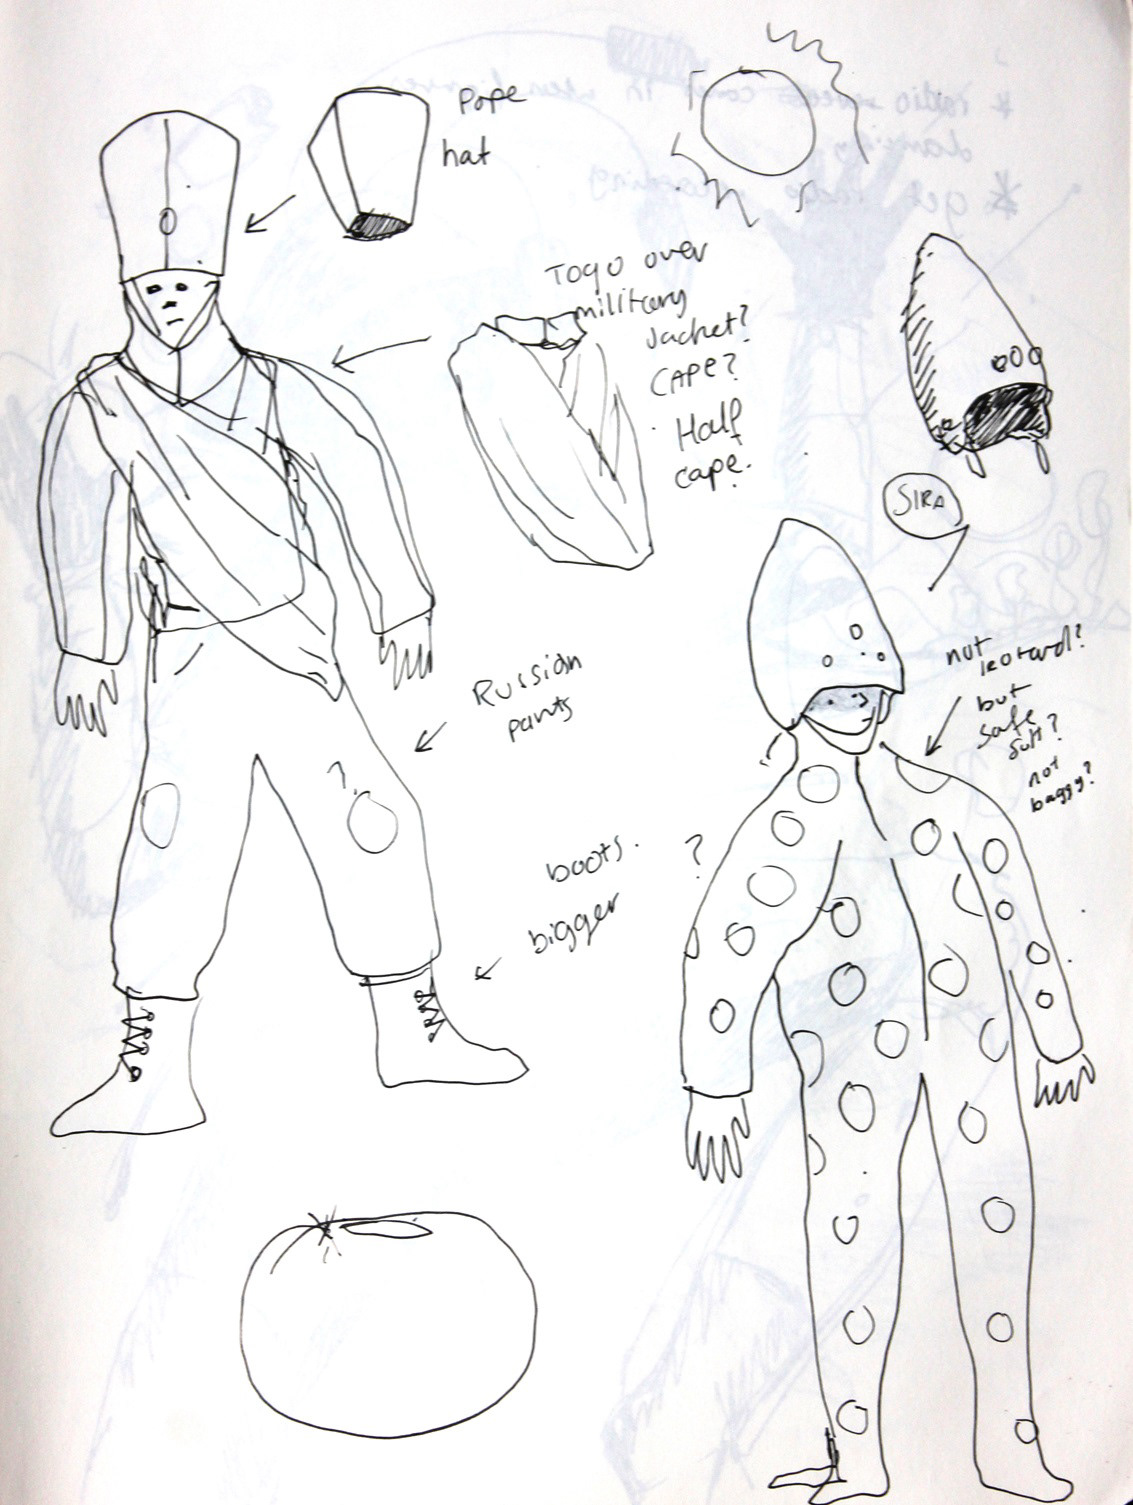 Pope
hat
Togo over
military
Jacket?
CAPE?
Half
cape.
SIRA
not
leotard?
but
safe
suit?
not
baggy?
Russian
pants
?
boots.
bigger
?
* radio
* get radio